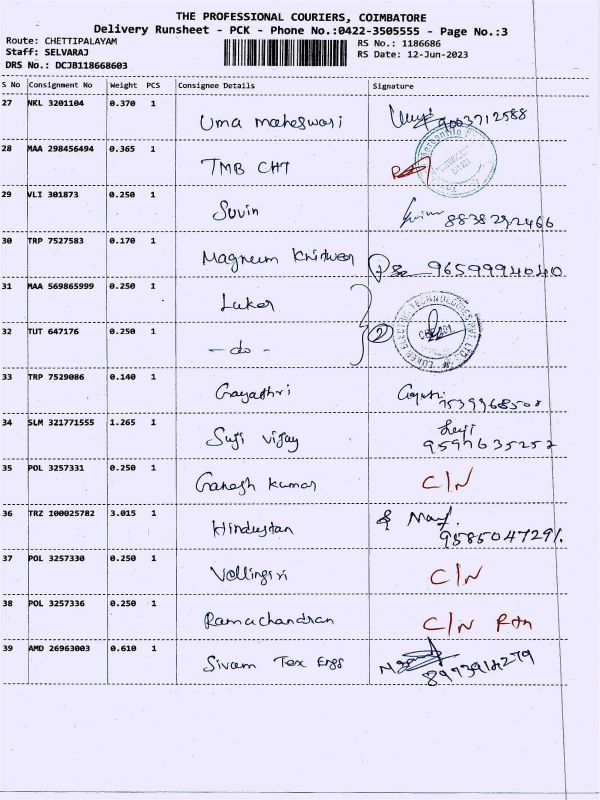 THE PROFESSIONAL COURIERS, COIMBATORE
Delivery Runsheet - PCK - Phone No.:0422-3505555 - Page No.:3
Route: CHETTIPALAYAM
Staff: SELVARAJ
DRS No.: DCJB118668603
RS No.: 1186686
RS Date: 12-Jun-2023
S No Consignment No Weight PCS Consignee Details Signature
27 NKL 3201104 0.370 1 Uma maheswari 9003712588
28 MAA 298456494 0.365 1 TMB CHT
29 VLI 301873 0.250 1 Suvin 8838292466
30 TRP 7527583 0.170 1 Magneum 9659994040
31 MAA 569865999 0.250 1 Luker
32 TUT 647176 0.250 1 - do - 2
33 TRP 7529086 0.140 1 Gayathri
34 SLM 321771555 1.265 1 Suji Vijay 9597635252
35 POL 3257331 0.250 1 Ganesh Kumar C/N
36 TRZ 100025782 3.015 1 Hindustan
37 POL 3257330 0.250 1 Vellingiri C/N
38 POL 3257336 0.250 1 Ramachandran C/N Rtn
39 AMD 26963003 0.610 1 Sivam Tex Engg